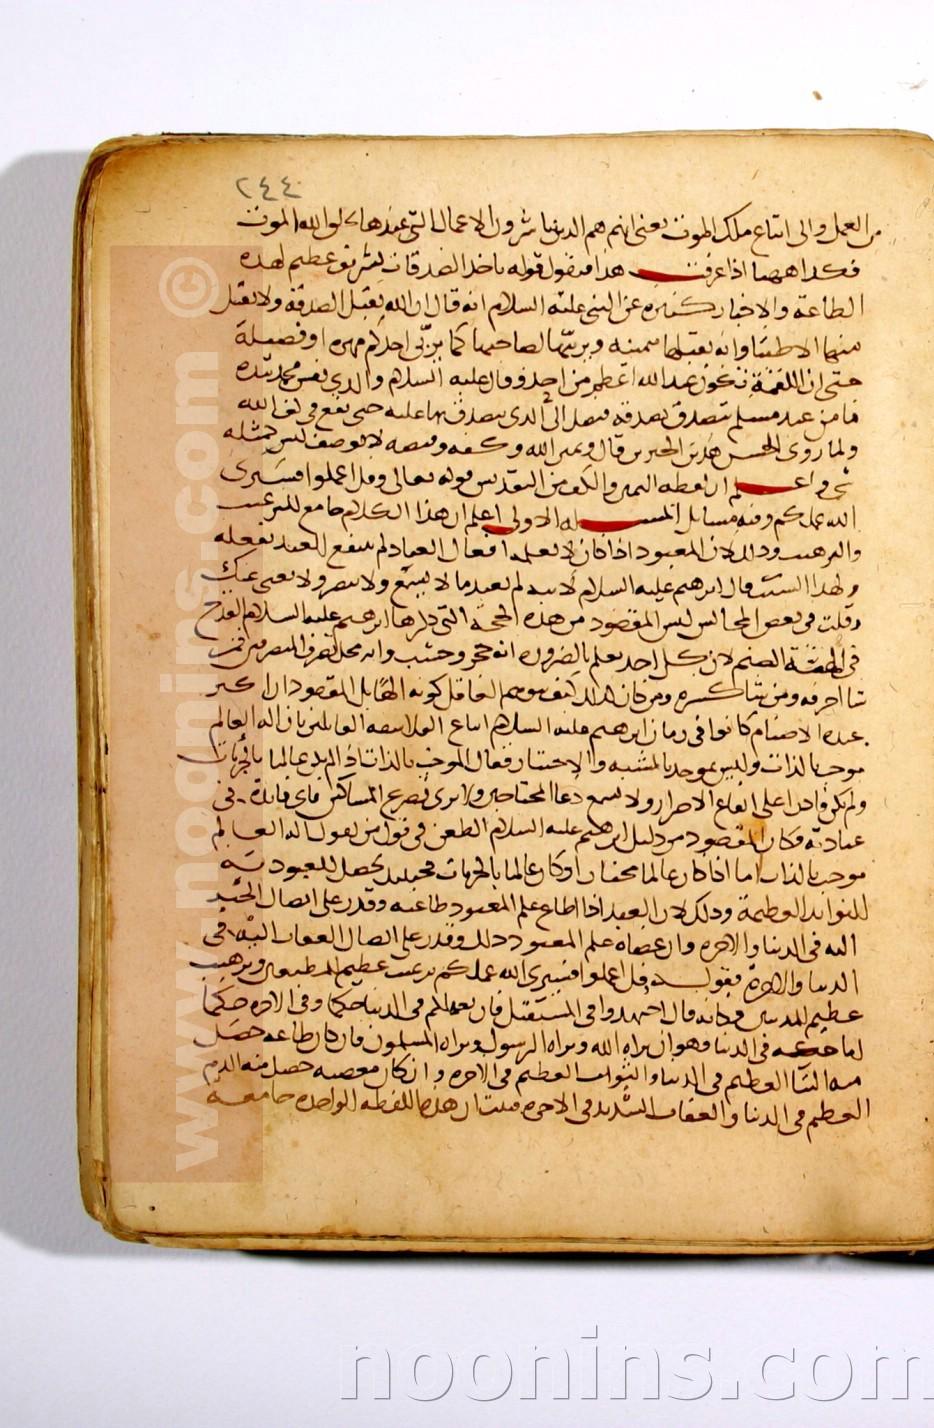 ٢٤٤
من العمل والى اتباع ملك الموت يعنى انهم هم الذين باشرون الاعمال التى عندها يخلق الله الموت
فكذا ههنا اذا عرفت هذا فنقول قوله ياخذ الصدقات تشريف عظيم لهذه
الطاعة والاخبار كثيره عن النبى عليه السلام انه قال ان الله يقبل الصدقة ولا يقبل
منها الا طيبا وانه يقبلها بيمينه ويربيها لصاحبها كما يربى احدكم مهره او فصيله
حتى ان اللقمة تكون عند الله اعظم من احد وقال عليه السلام والذي نفس محمد بيده
ما من عبد مسلم يتصدق بصدقة فتصل الى الذى يتصدق بها عليه حتى تقع فى كف الله
ولما روى الحسن هذين الخبرين قال ويمين الله وكفه وقبضته لا توصف ليس كمثله
شى واعلم ان لفظه اليمين والكف من التقديس قوله تعالى وقل اعملوا فسيرى
الله عملكم وفيه مسايل المسئله الاولى اعلم ان هذا الكلام جامع للترغيب
والترهيب وذلك لان المعبود اذا كان لا يعلم افعال العباد لم ينتفع العبد بفعله
ولهذا السبب قال ابرهيم عليه السلام لابيه لم تعبد ما لا يسمع ولا يبصر ولا يغنى عنك
وقلت فى بعض المجالس ليس المقصود من هذه الحجة التى ذكرها ابرهيم عليه السلام القدح
فى الهية الصنم لان كل احد يعلم بالضروره انه حجر وخشب وانه محل تصرف المتصرفين فمن
شا احرقه ومن شا كسره ومن كان كذلك كيف يتوهم العاقل كونه الها بل المقصود ان اكثر
عبده الاصنام كانوا فى زمان ابرهيم عليه السلام اتباع الفلاسفه القايلين بان اله العالم
موجب بالذات وليس بموجد بالمشيه والاختيار فقال الموجب بالذات اذا لم يكن عالما بالجزئيات
ولم يكن قادرا على انفاع الاضرار ولا يسمع دعا المحتاجين ولا يرى تضرع المساكين فاى فايدة فى
عبادته فكان المقصود من دليل ابرهيم عليه السلام الطعن فى قول من يقول اله العالم
موجب بالذات اما اذا كان عالما مختارا وكان عالما بالجزئيات فحينيذ يحصل للعبودية
للفوايد العظيمة وذلك لان العبد اذا اطاع علم المعبود طاعته وقدر على ايصال الخير
اليه فى الدنيا والاخره وان عصاه علم المعبود ذلك وقدر على ايصال العقاب اليه فى
الدنيا والاخرة فقوله وقل اعملوا فسيرى الله عملكم ترغيب عظيم للمطيعين وترهيب
عظيم للمذنبين فكانه قال اجتهدوا فى المستقبل فان لعملكم فى الدنيا حكما وفى الاخره حكما
اما حكمه فى الدنيا فهو ان يراه الله ويراه الرسول ويراه المسلمون فان كان طاعه حصل
منه الثنا العظيم فى الدنيا والثواب العظيم فى الاخره وان كان معصيه حصل منه الذم
العظيم فى الدنيا والعقاب الشديد فى الاخره فثبت ان هذه اللفظه الواحده جامعة
www.noonins.com ©
noonins.com